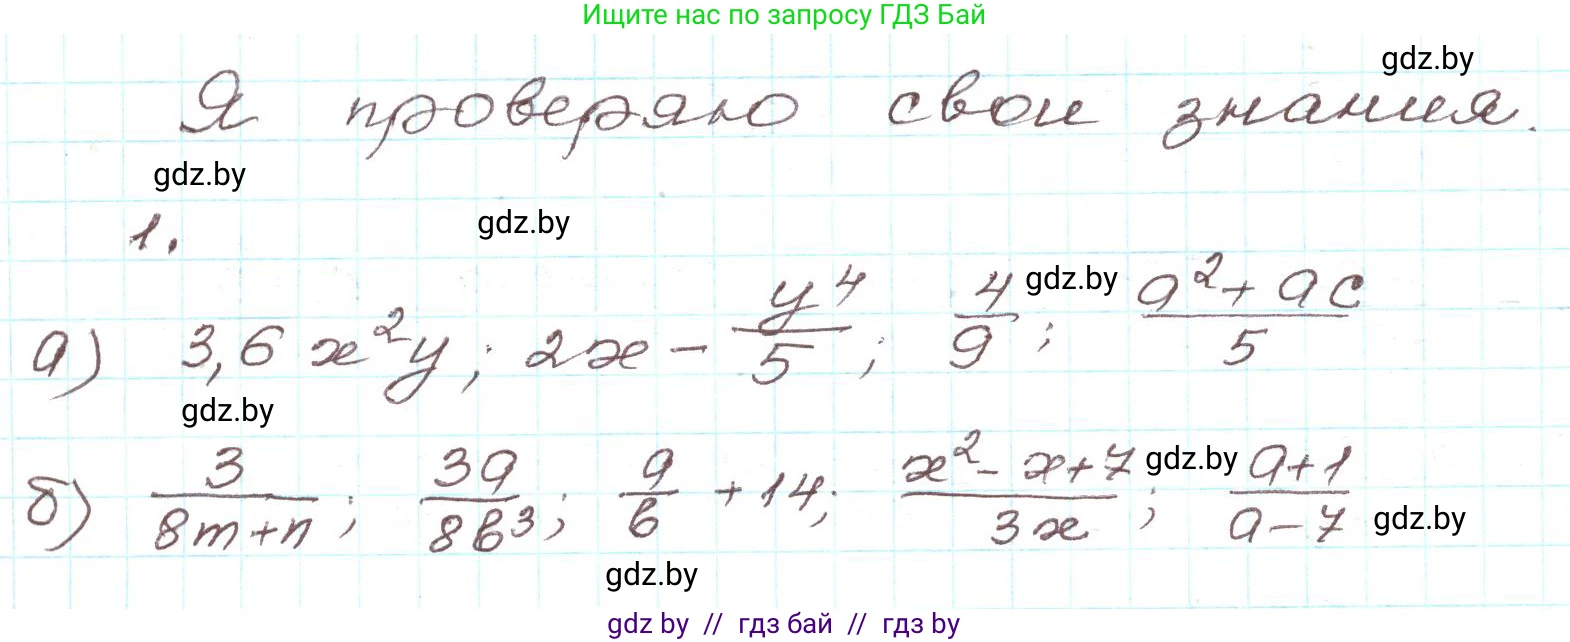 Ищите нас по запросу ГДЗ Бай
Я проверяю свои знания.
gdz.by
gdz.by
1.
gdz.by
а) 3,6 x²y; 2x - y⁴/5; 4/9; (a² + ac)/5
gdz.by
gdz.by
б) 3/(8m+n); 3a/8b³; a/b + 14; (x² - x + 7)/3x; (a+1)/(a-7)
gdz.by
gdz.by
gdz.by
gdz by // гдз бай // гдз by